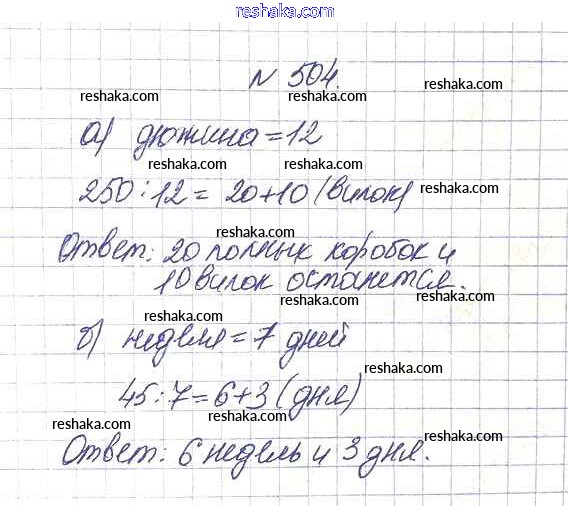 reshaka.com
№ 504.
reshaka.com reshaka.com
а) дюжина = 12
reshaka.com reshaka.com
250 : 12 = 20 + 10 (вилок) reshaka.com
reshaka.com reshaka.com
Ответ: 20 полных коробок и
reshaka.com
10 вилок останется.
reshaka.com reshaka.com
reshaka.com
б) неделя = 7 дней
reshaka.com
reshaka.com
45 : 7 = 6 + 3 (дня)
reshaka.com reshaka.com
reshaka.com
Ответ: 6 недель и 3 дня.
reshaka.com
reshaka.com